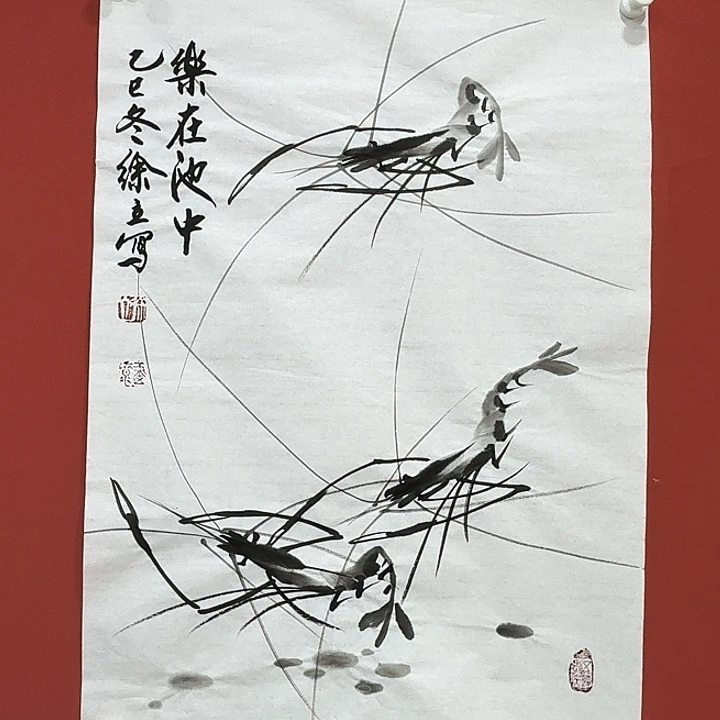 樂在池中
乙巳冬徐立寫